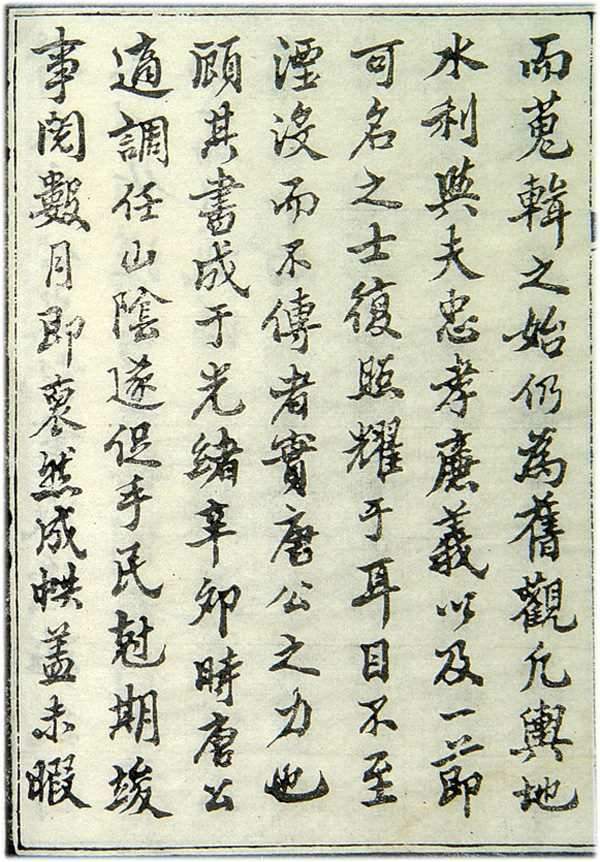 而蒐輯之始仍為舊觀凡輿地
水利與夫忠孝廉義以及一節
可名之士復照耀于耳目不至
湮沒而不傳者實唐公之力也
顧其書成于光緒辛卯時唐公
適調任山陰遂促手民尅期竣
事閱數月即裒然成帙蓋未暇